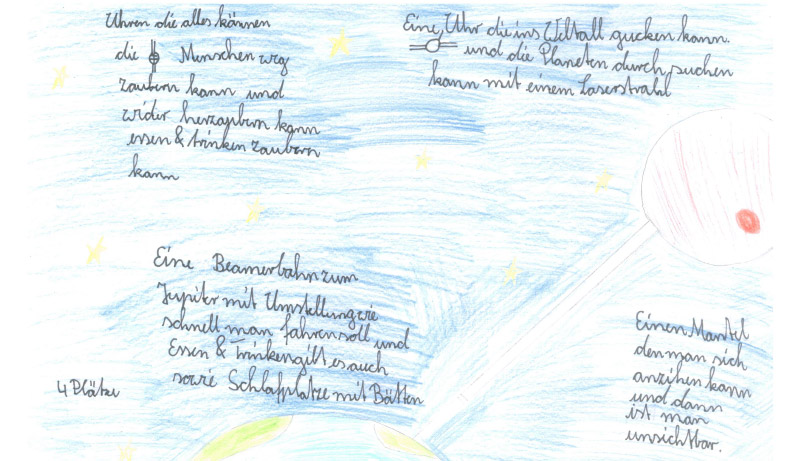 Uhren die alles können
die Menschen weg
zaubern kann und
wider herzaubern kann
essen & trinken zaubern
kann
Eine Uhr die ins Weltall gucken kann.
und die Planeten durch suchen
kann mit einem Laserstrahl
Eine Beamerbahn zum
Jupiter mit Umstellung wie
schnell man fahren soll und
Essen & Trinken gibt es auch
sowie Schlafplätze mit Bätten
4 Plätze
Einen Mantel
den man sich
anzihen kann
und dann
ist man
unsichtbar.